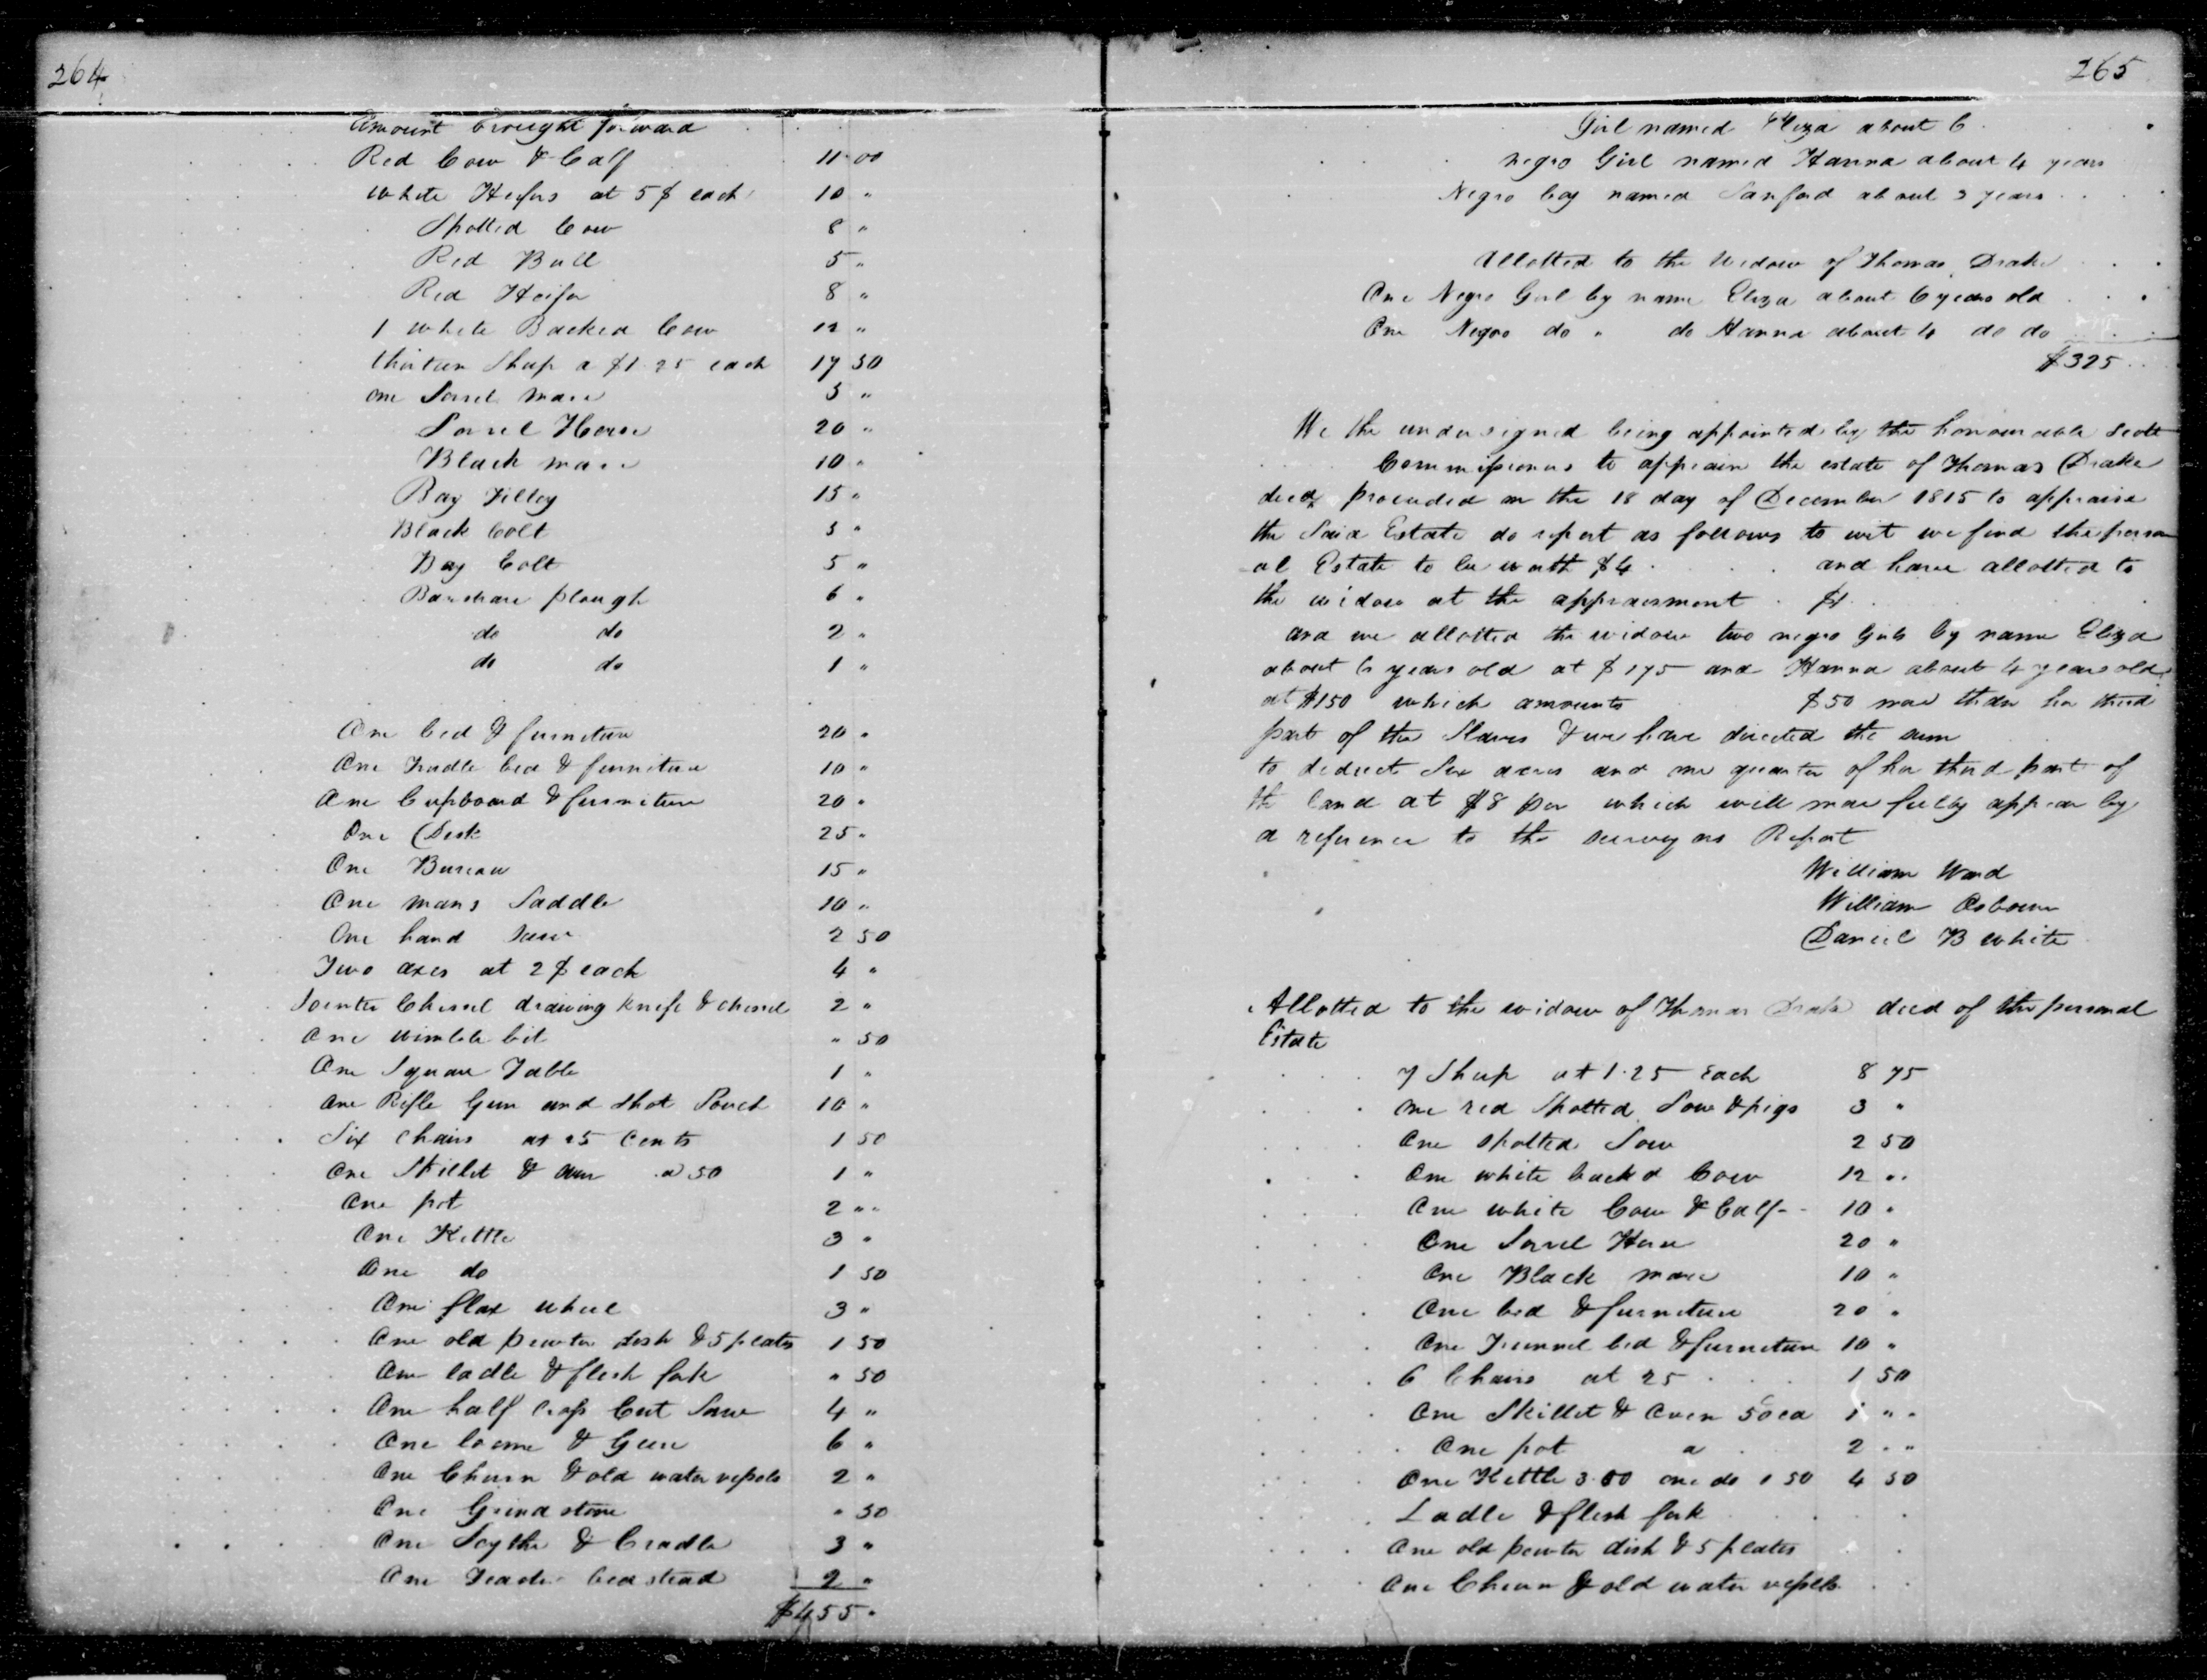 264
Amount brought forward
Red Cow & Calf 11 00
white Heifers at 5$ each 10 "
Spotted Cow 8 "
Red Bull 5 "
Red Heifer 8 "
1 white Backed Cow 12 "
thirteen Sheep a $1.25 each 17 50
one Sorrel mare 5 "
Sorrel Horse 20 "
Black mare 10 "
Bay Filley 15 "
Black Colt 3 "
Bay Colt 5 "
Barshare plough 6 "
do do 2 "
do do 1 "
One bed & furniture 20 "
One Trudle bed & furniture 10 "
One Cupboard & furniture 20 "
One Desk 25 "
One Bureau 15 "
One mans Saddle 10 "
One hand saw 2 50
Two axes at 2$ each 4 "
Jointer Chissel drawing knife & chissel 2 "
One wimble bit " 50
One Square Table 1 "
One Rifle Gun and shot Pouch 10 "
Six chairs at 25 Cents 1 50
One Skillet & oven a 50 1 "
One pot 2 "
One Kettle 3 "
One do 1 50
One flax wheel 3 "
One old pewter dish & 5 plates 1 50
One ladle & flesh fork " 50
One half Cross Cut Saw 4 "
One loome & Geer 6 "
One Churn & old water vessels 2 "
One Grind stone " 50
One Scythe & Cradle 3 "
One bedstead 2 "
$455 "
265
Girl named Eliza about 6
negro Girl named Hanna about 4 years
Negro boy named Sanford about 2 years
Allotted to the Widow of Thomas Drake
One Negro Girl by name Eliza about 6 years old
One Negro do " do Hanna about 4 do do
$325
We the undersigned being appointed by the honourable Scott
Commissioners to appraise the estate of Thomas Drake
decd proceeded on the 18 day of December 1815 to appraise
the Said Estate do report as follows to wit we find the person
al Estate to be worth $4 and have allotted to
the widow at the appraisment $1
and we allotted the widow two negro Girls by name Eliza
about 6 years old at $175 and Hanna about 4 years old
at $150 which amounts $50 more than her third
part of the Slaves & we have directed the sum
to deduct Six acres and one quarter of her third part of
the land at $8 per which will more fully appear by
a reference to the surveyors Report
William Ward
William Osbourn
Daniel B White
Allotted to the widow of Thomas Drake decd of the personal
Estate
7 Sheep at 1.25 Each 8 75
One red Spotted Sow & pigs 3 "
One spotted Sow 2 50
One white backed Cow 12 "
One white Cow & Calf 10 "
One Sorrel Horse 20 "
One Black mare 10 "
One bed & furniture 20 "
One Trunnel bed & furniture 10 "
6 Chairs at 25 1 50
One Skillet & Oven 50 ea 1 "
One pot a 2 "
One Kettle 3.00 one do 1 50 4 50
Ladle & flesh fork
One old pewter dish & 5 plates
One Churn & old water vessels